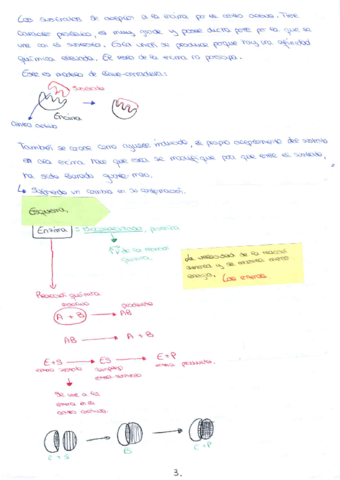 Los sustratos se acoplan a la enzima por el centro activo. Tiene
carácter proteico, es muy grande y posee dicha parte por la que se
une con el sustrato. Esta unión se produce porque hay una afinidad
química elevada. El resto de la enzima no participa.
Este es modelo de llave-cerradura:
Sustrato
Enzima
centro activo
También se conoce como ajuste inducido, el propio acoplamiento del sustrato
en la enzima hace que esta se modifique para que entre el sustrato,
ha sido llamado
↳ Sufriendo un cambio en su conformación.
Esquema
Enzima : Biocatalizador, proteína
↑V de la reacción
química.
La velocidad de la reacción
aumenta y se necesita menos
energía.
Reacción química
reactivo producto
A + B → AB
AB → A + B
E+S → ES → E+P
enzima sustrato complejo enzima producto
enzima sustrato
Se une a la
enzima en el
centro activo.
E + S
ES
E + P
3.